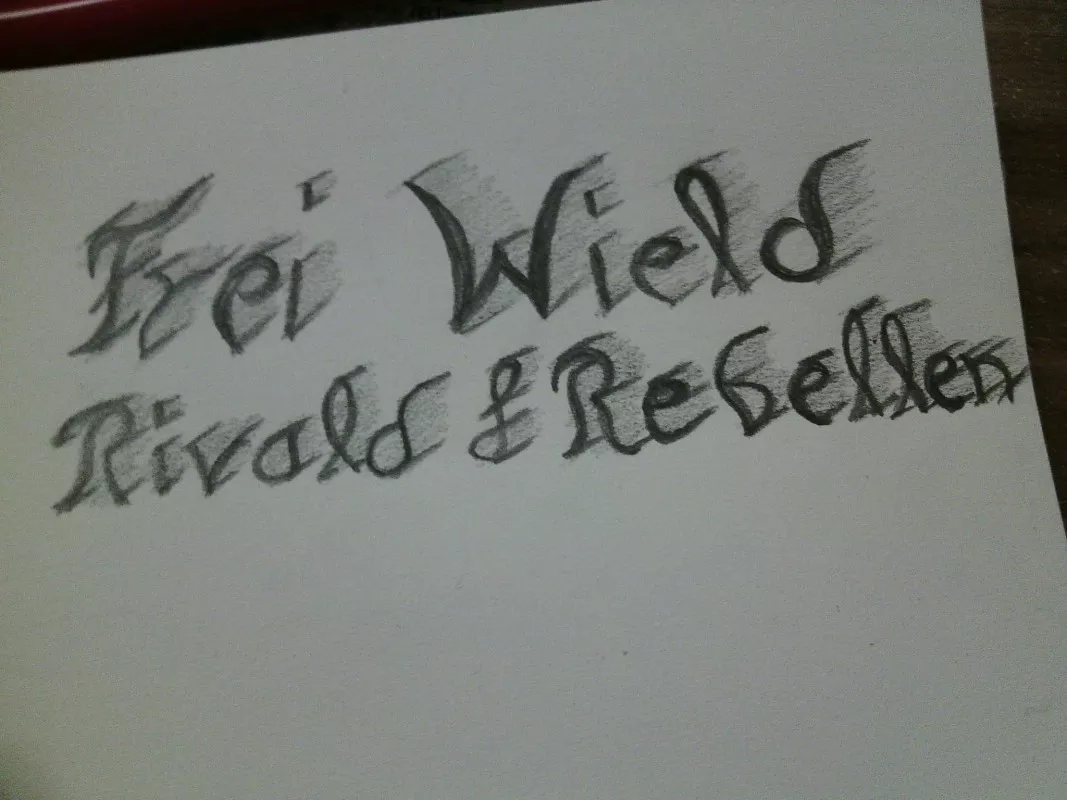 Frei Wield
Rivald & Rebellen